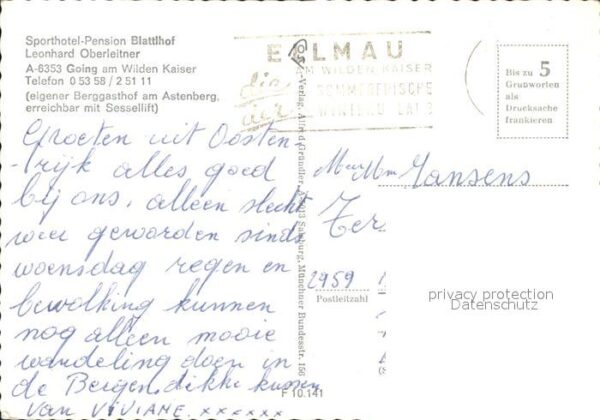 Sporthotel-Pension Blattlhof
Leonhard Oberleitner
A-6353 Going am Wilden Kaiser
Telefon 0 53 58 / 2 51 11
(eigener Berggasthof am Astenberg,
erreichbar mit Sessellift)
ELLMAU
AM WILDEN KAISER
SOMMERFRISCHE
WINTERURLAUB
Bis zu 5
Grußworten
als
Drucksache
frankieren
Groeten uit Oosten-
-rijk alles goed
bij ons, alleen slecht
weer geworden sinds
woensdag regen en
bewolking kunnen
nog alleen mooie
wandeling doen in
de Bergen. dikke kussen
van VIVIANE xxxxxx
Verlag Alfred Gründler, Salzburg, Münchner Bundesstr. 156
F 10.141
Jansens
Ter
2959
Postleitzahl
privacy protection
Datenschutz